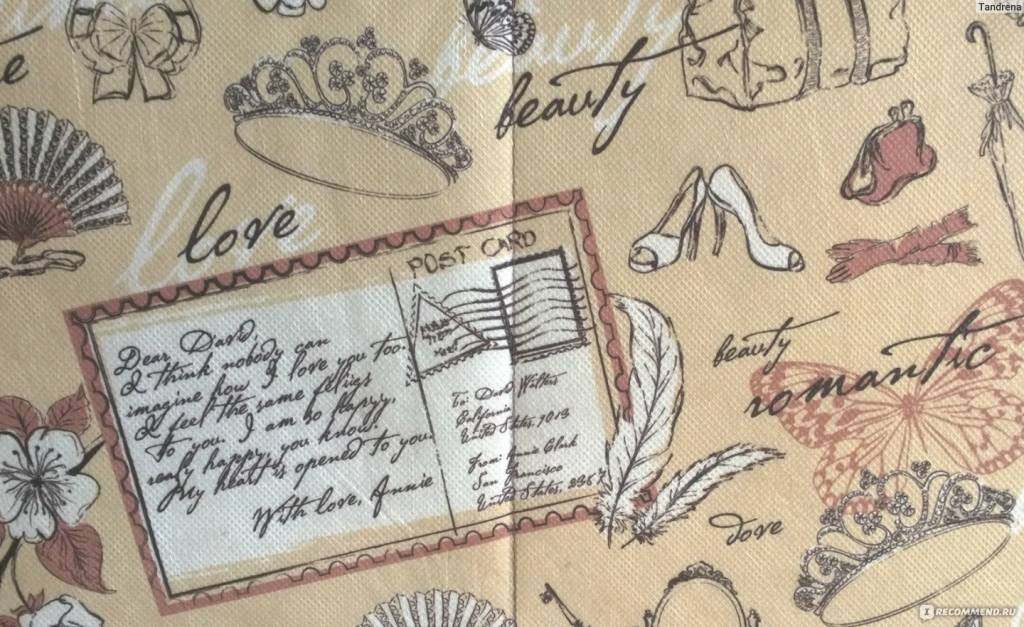 Tandrena
beauty
beauty
love
love
POST CARD
Dear David,
I think nobody can
imagine how I love you too.
I feel the same feligs
to you. I am so happy,
realy happy, you know.
My heart is opened to you.
With love, Annie
To: David Walters
California
United States, 9013
From: Annie Clark
San Francisco
United States, 8367
beauty
romantic
dove
IRECOMMEND.RU